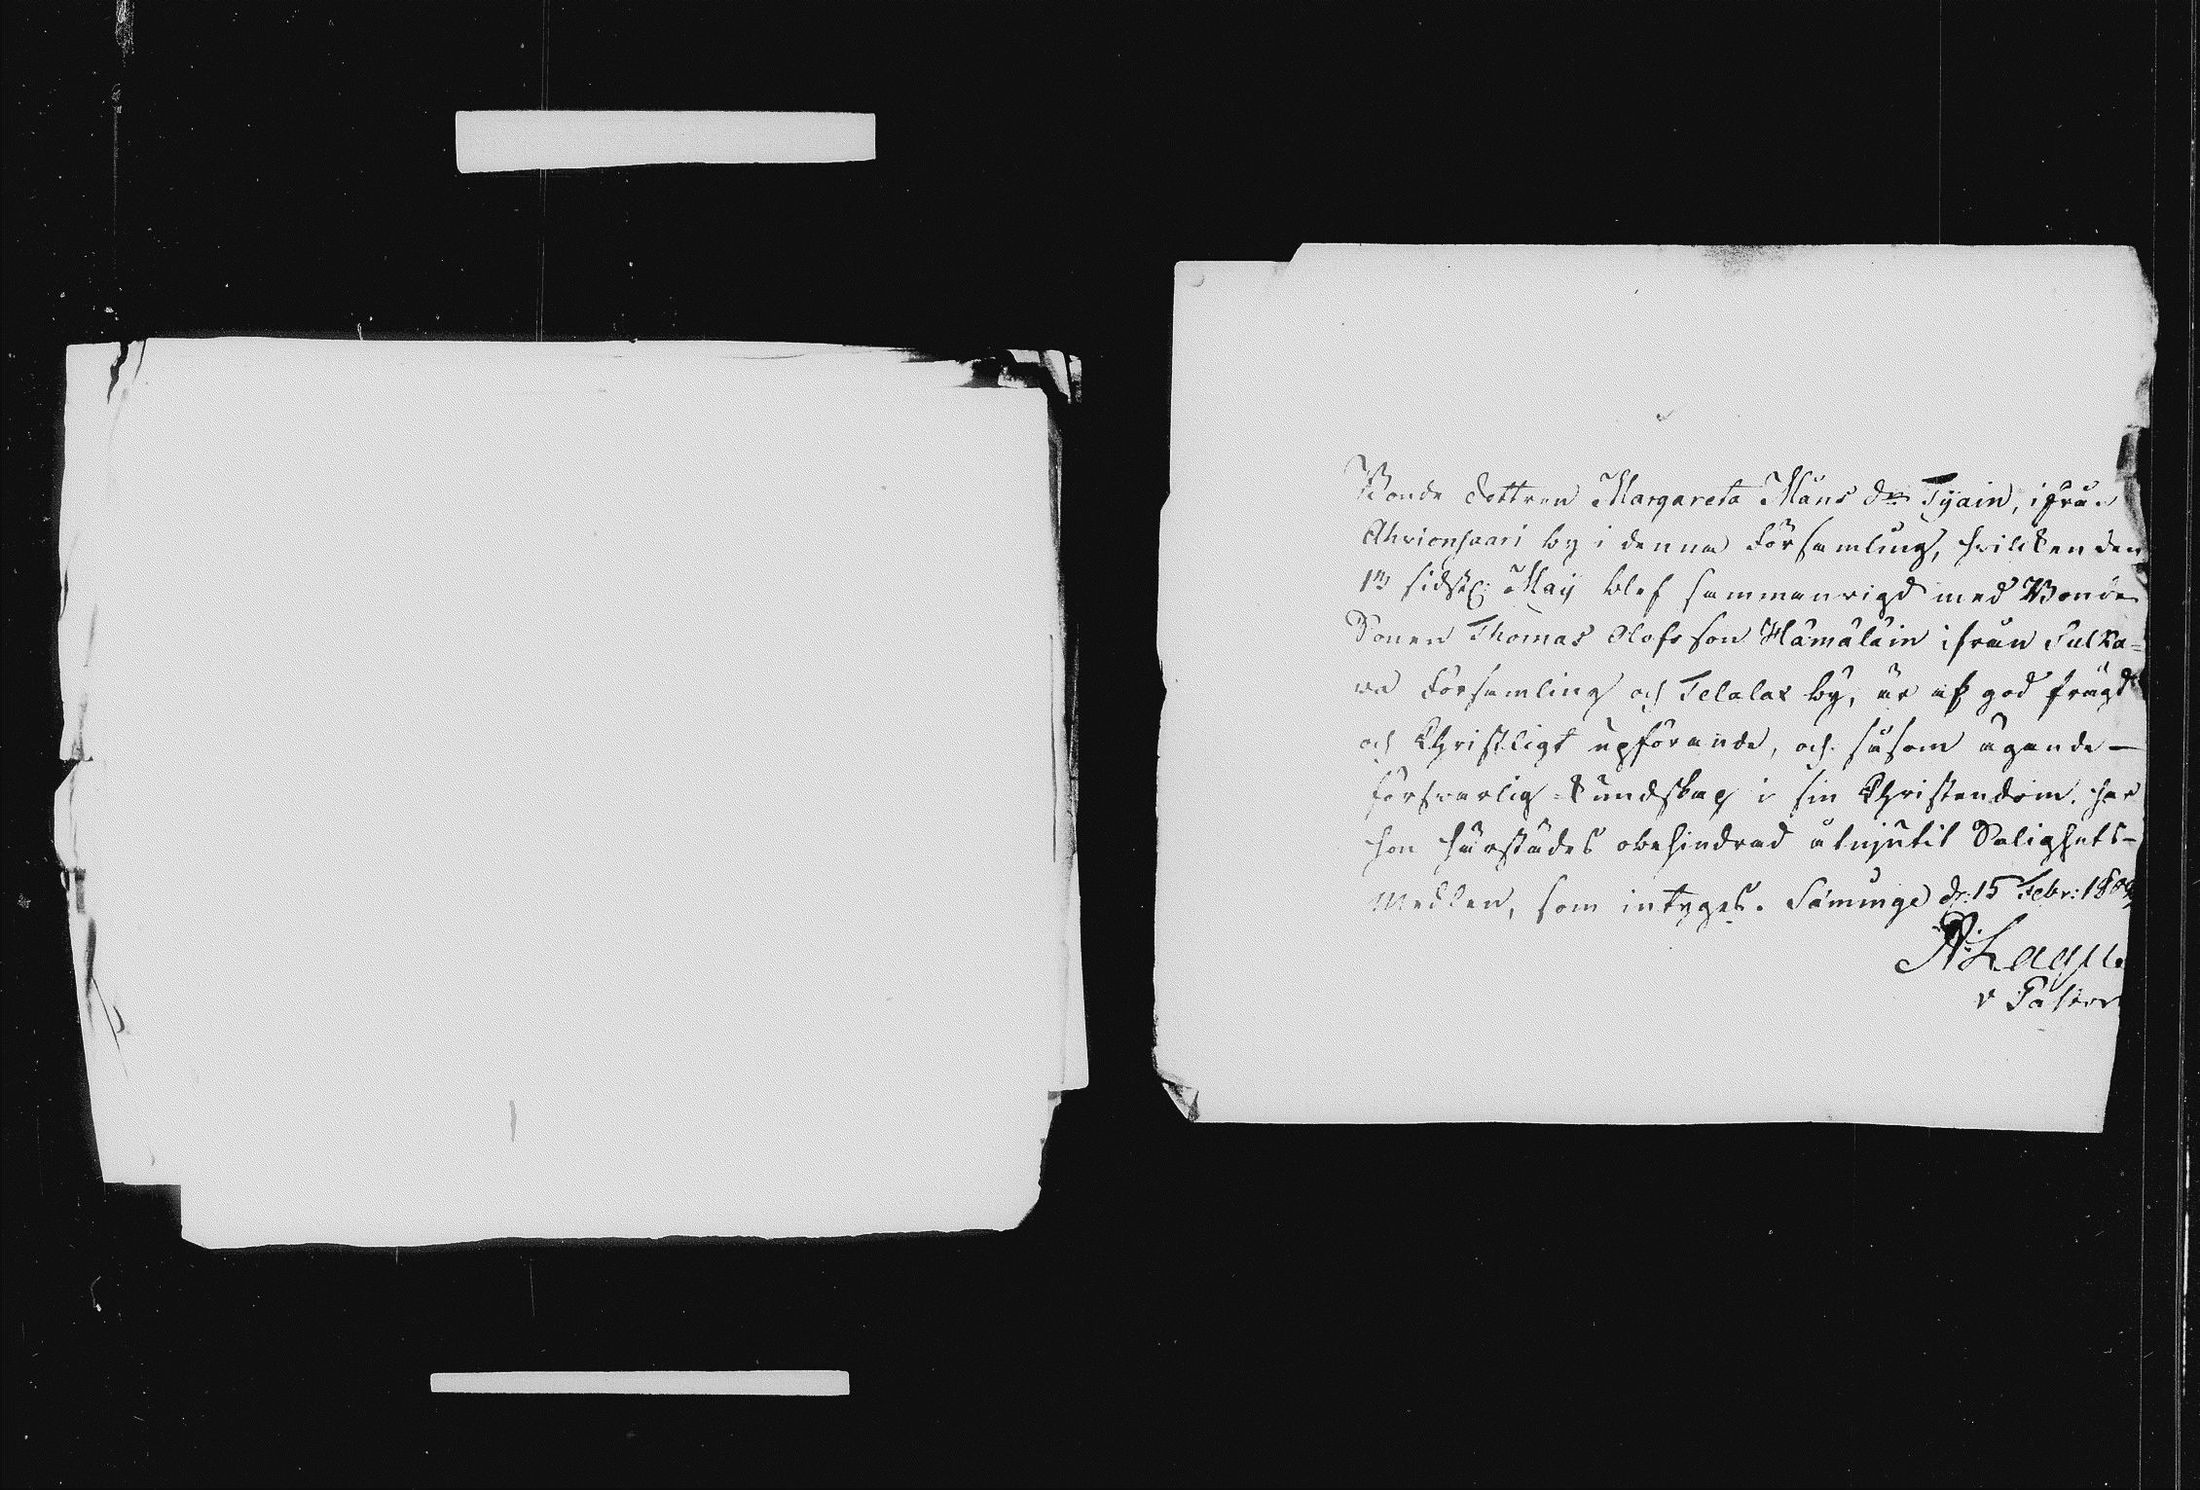 Bonde Dottren Margareta Måns dr Tyäin, ifrån
Ahvionsaari by i denna Församling, hvilken den
sidstl: Maij blef sammanvigd med Bonde
Sonen Thomas Olofsson Hämäläin ifrån Sulka-
va Församling och Telalax by, är af god frägd
och Christligt upförande, och såsom ägande
försvarlig kundskap i sin Christendom, har
hon härstädes obehindrad åtnjutit Salighets-
Medlen, som intygas. Säminge d: 15 Febr:
v Pastor